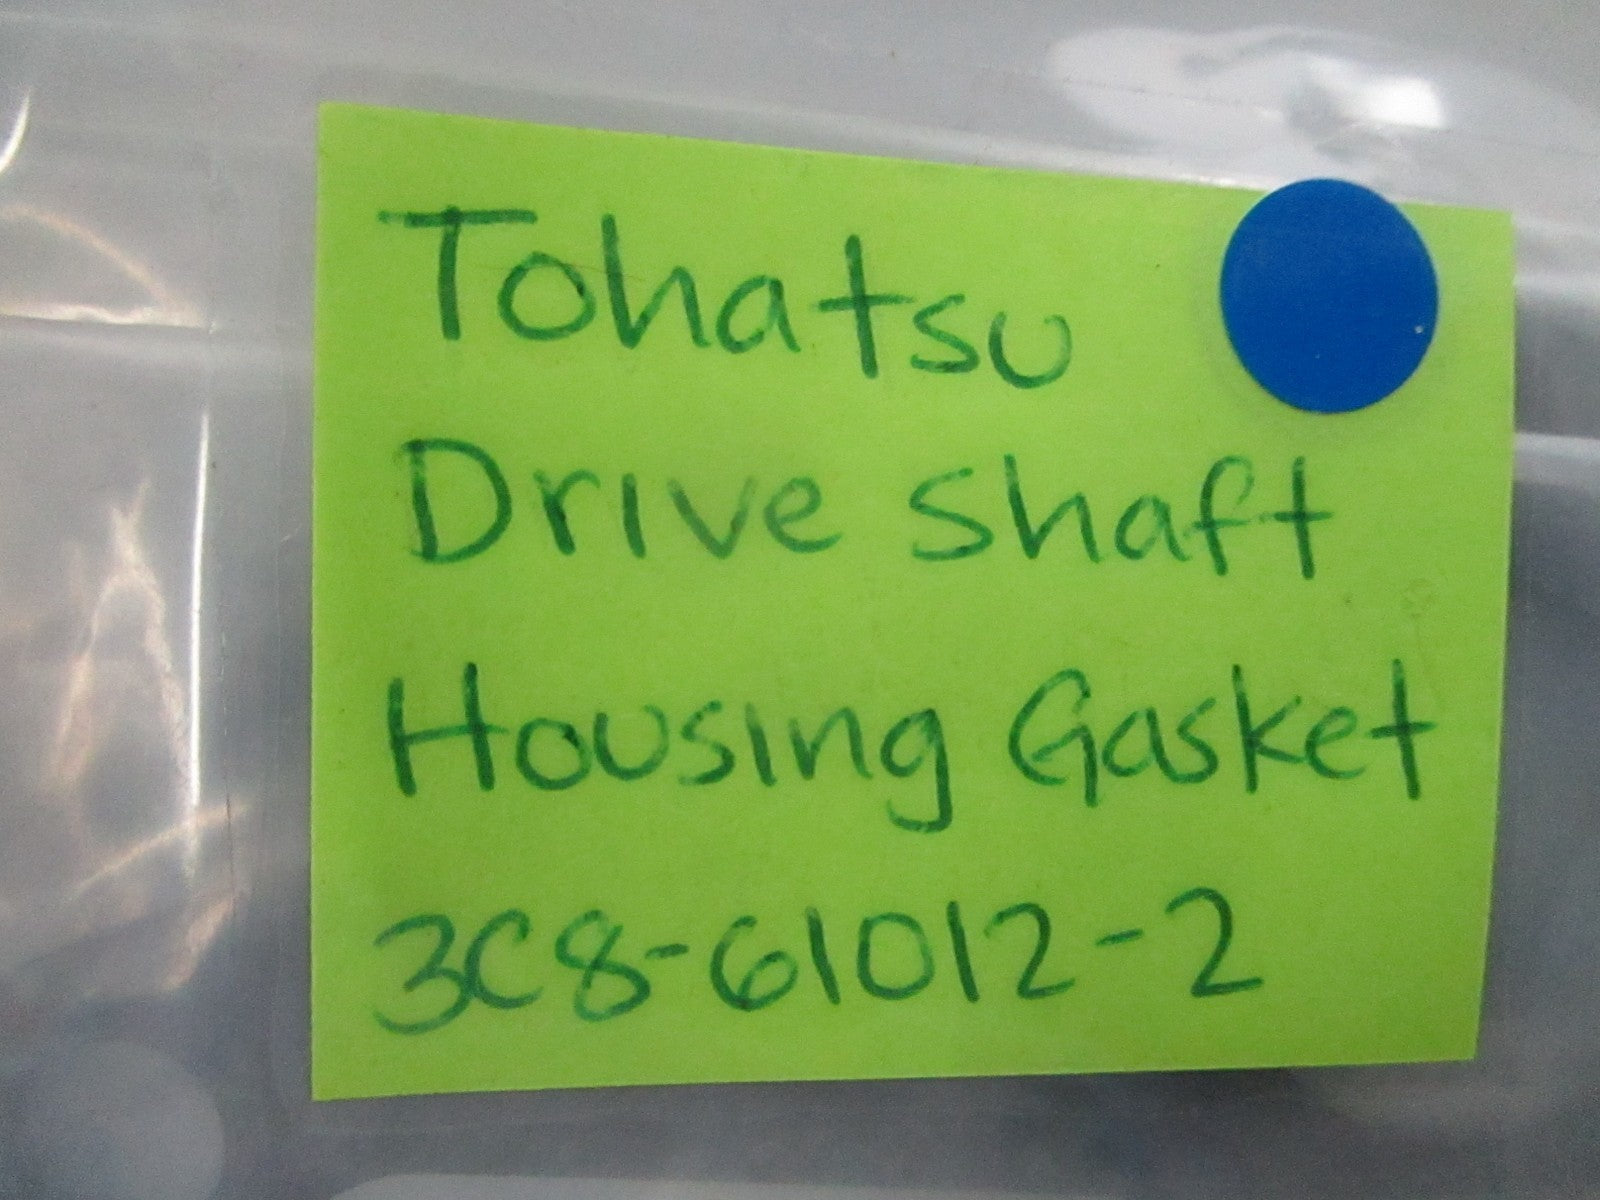 Tohatsu
Drive shaft
Housing Gasket
3C8-61012-2